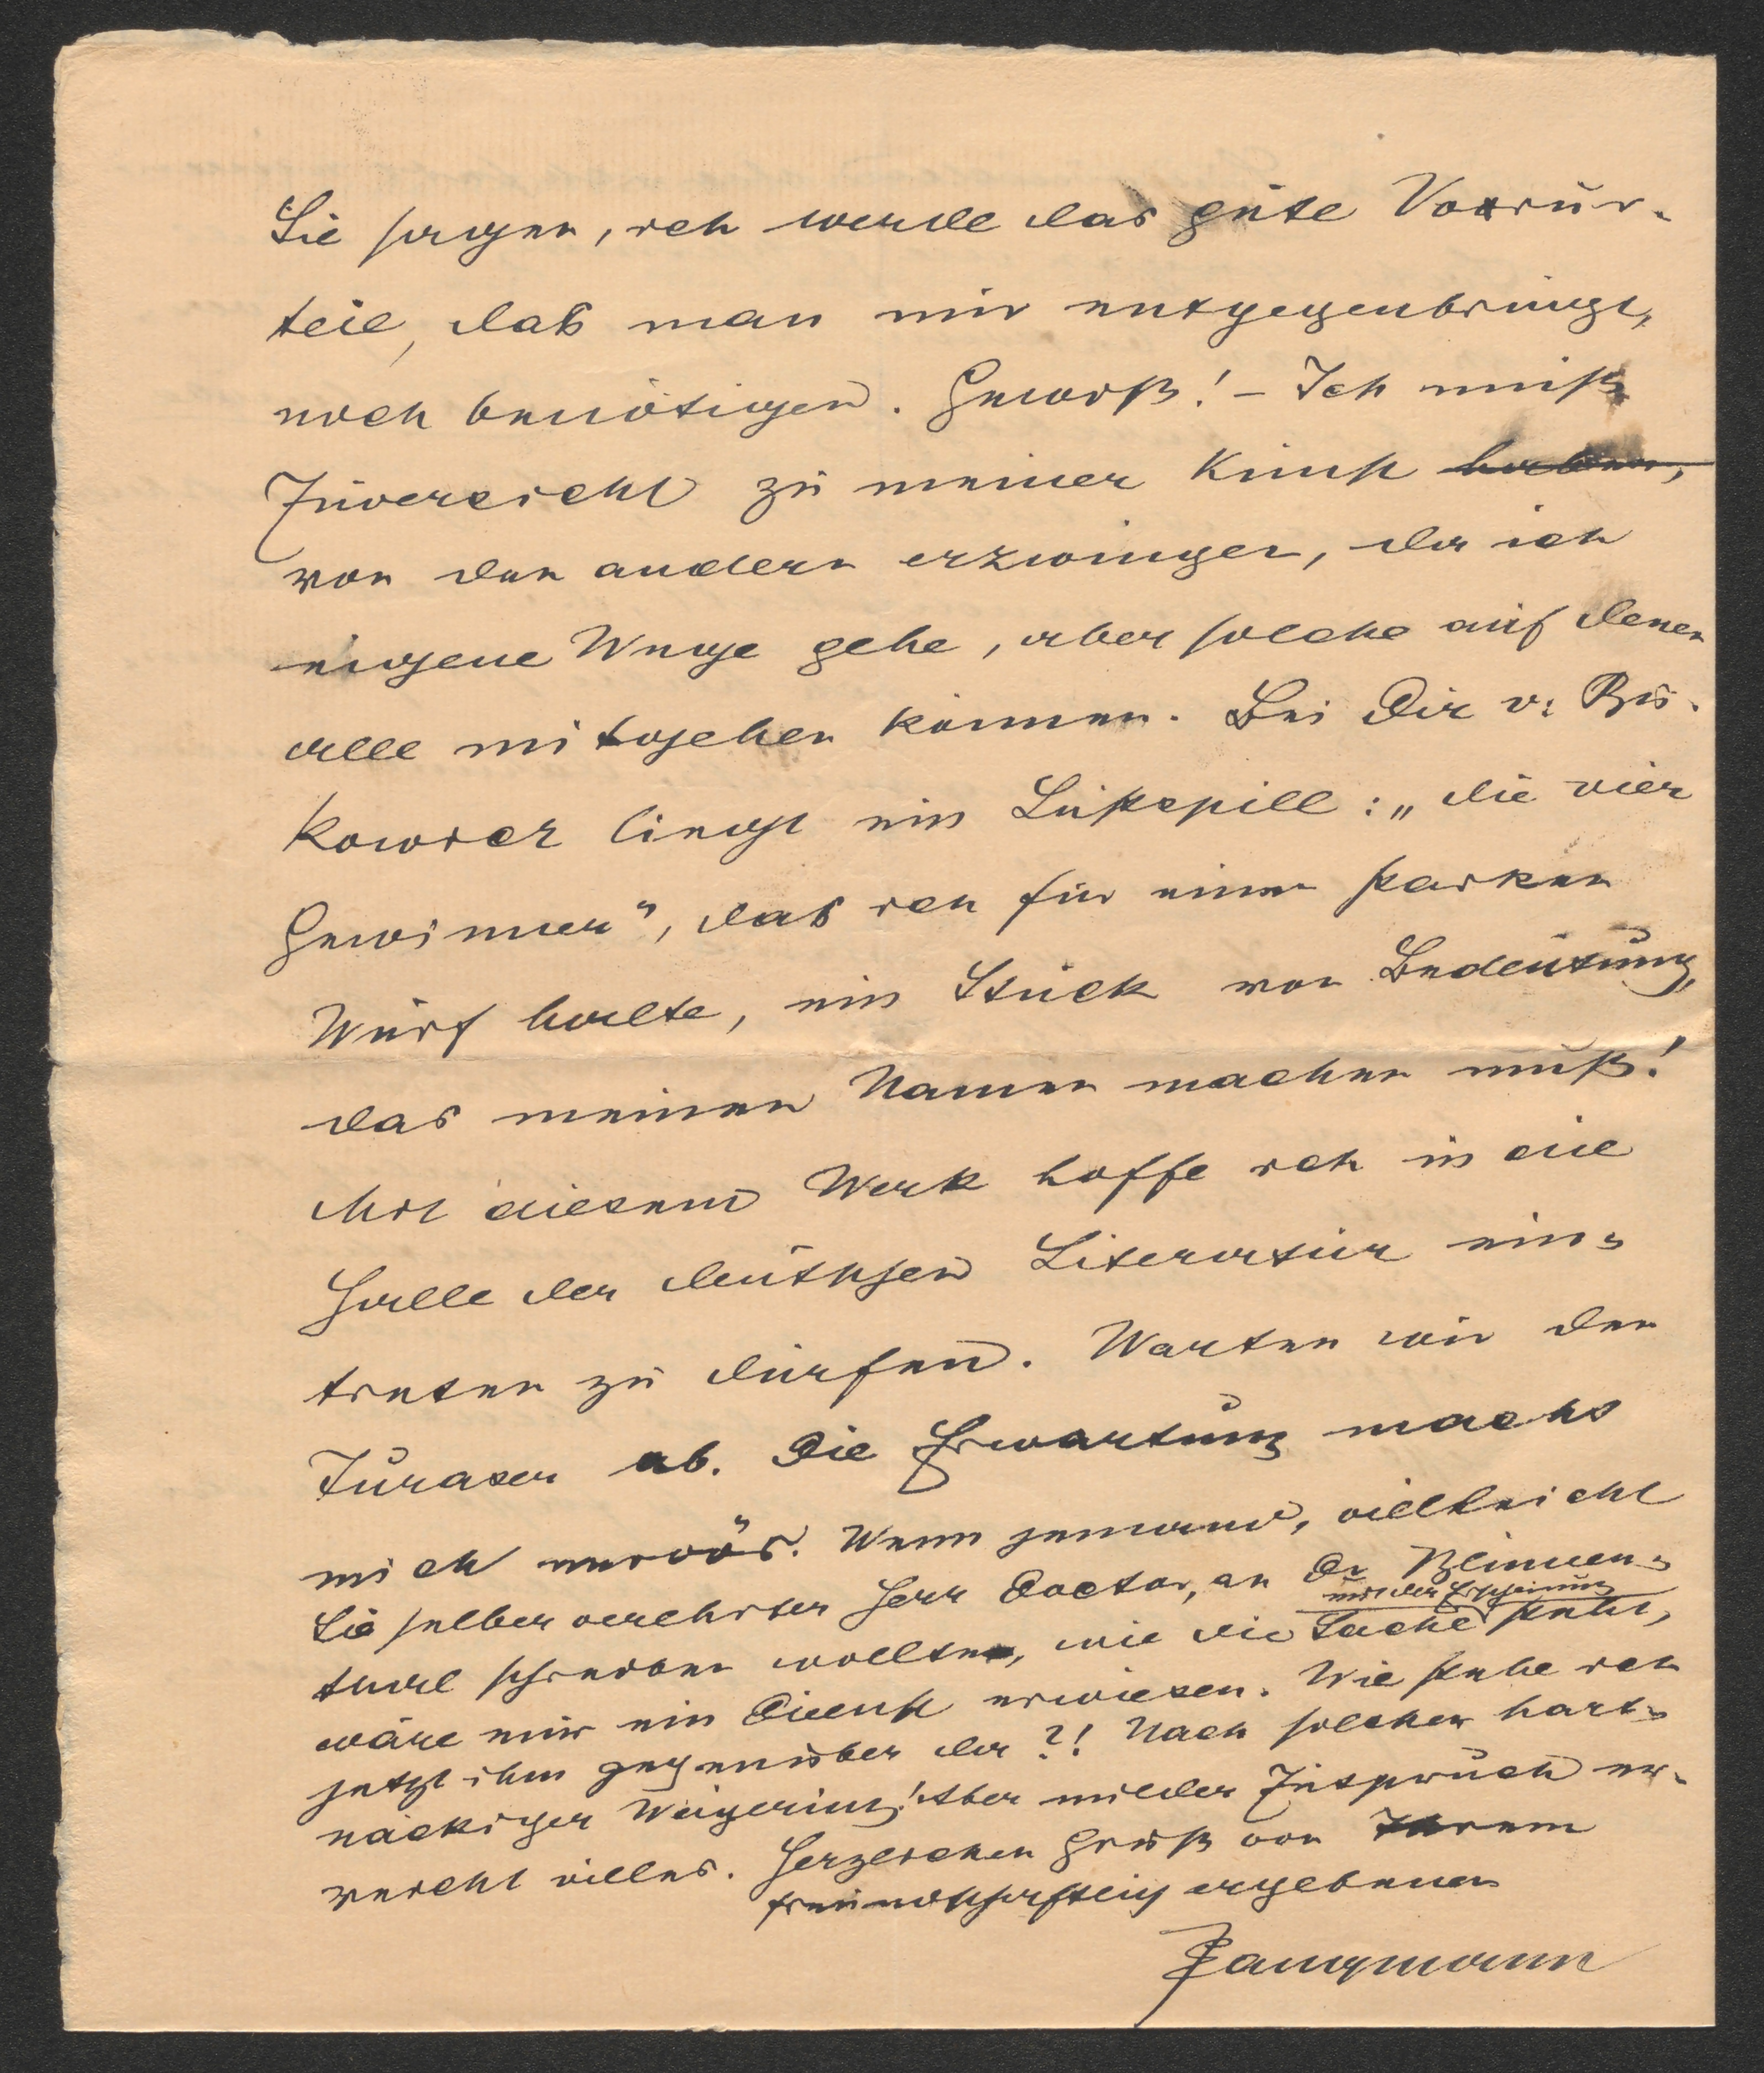 Sie sagen, ich werde das gute Vorur-
teil, das man mir entgegenbringt,
noch benötigen. Gewiß! – Ich muß
Zuversicht zu meiner Kunst haben,
von den andern erzwingen, da ich
eigene Wege gehe, aber solche auf denen
alle mitgehen können. Bei Dir v. Bu-
kowicz liegt ein Lustspill: „die vier
Gewinner", das ich für einen starken
Wurf halte, ein Stück von Bedeutung,
das meinen Namen machen muß!
Mit diesem Werk hoffe ich in die
Halle der deutschen Literatur ein-
treten zu dürfen. Warten wir den
Juraser ab. Die Erwartung macht
mich nervös. Wenn jemand, villleicht
Sie selber verehrter Herr Doctor, an Dr Blimen-
mit der Erscheinung
thal schreiben wollten, wie die Sache steht,
wäre mir ein Dienst erwiesen. Wie stehe ich
jetzt ihm gegenüber da?! Nach solcher hart-
näckiger Weigerung! Aber milder Zuspruch er-
weicht villes. Herzlichen Gruß von Ihrem
freundschaftlich ergebenen
Langmann